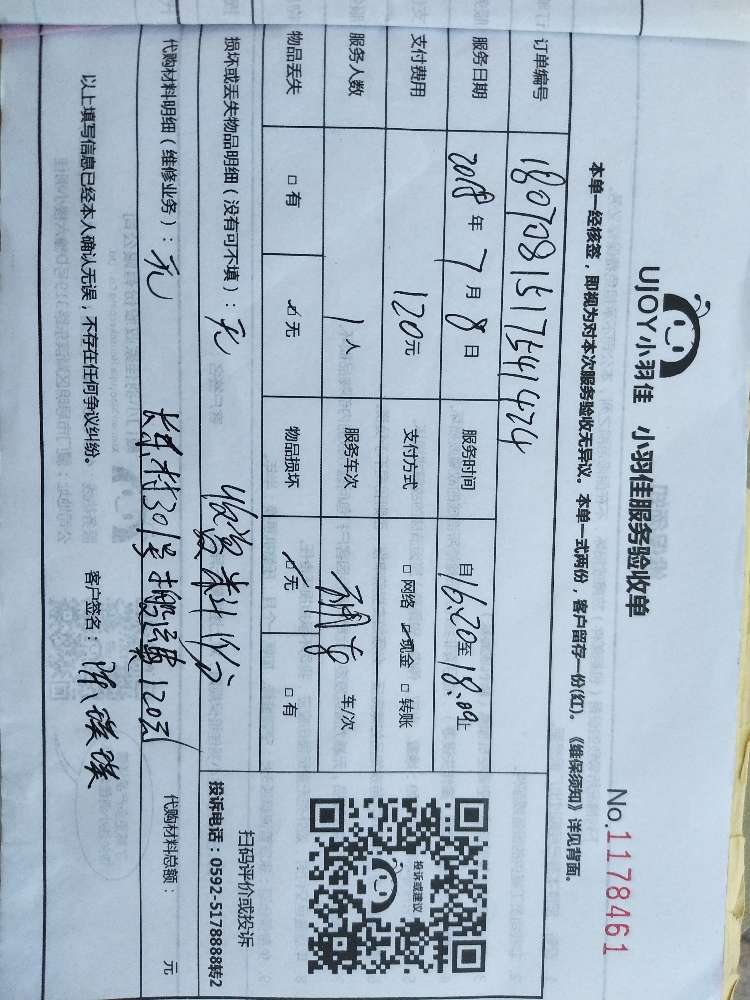 UJOY小羽佳 小羽佳服务验收单
No.1178461
本单一经核签，即视为对本次服务验收无异议。本单一式两份，客户留存一份(红)。《维保须知》详见背面。
订单编号 1807081517541424
服务日期 2018年7月8日 服务时间 自16:20至18:09止
支付费用 120元 支付方式 □网络 ☑现金 □转账
服务人数 1人 服务车次 车/次
物品丢失 □有 ☑无 物品损坏 ☑无 □有
投诉或建议
扫码评价或投诉
投诉电话：0592-5178888转2
损坏或丢失物品明细（没有可不填）：无
代购材料明细（维修业务）：无 代购材料总额： 元
村301号 120元
以上填写信息已经本人确认无误，不存在任何争议纠纷。 客户签名：